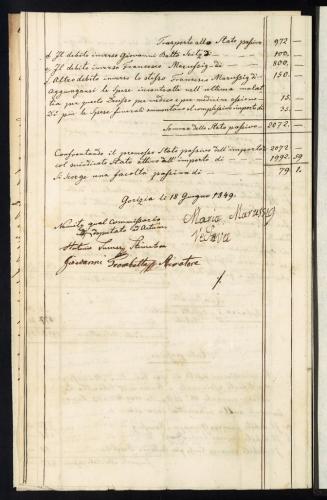 Trasporto dello Stato passivo 972 —
d Il debito inverso Giovanni Batta Seitz di — 100. —
e Il debito inverso Francesco Marussig di — 800. —
f Altro debito inverso lo stesso Francesco Marussig di 150. —
Aggiungansi le spese incontrate nell'ultima malat
tia per medico e per medicine 15. —
Di più le spese funerali ammontano al complessivo importo di 35. —
Somma dello Stato passivo 2072. —
Confrontando il premesso Stato passivo dell'importo di 2072 —
col suindicato Stato attivo dell'importo di — 1992. 59
Si scorge una facoltà passiva di — 79 1.
Gorizia li 18 Giugno 1849.
qual commissario
deputato
Maria Marussig
Vedova
Stefano
Giovanni